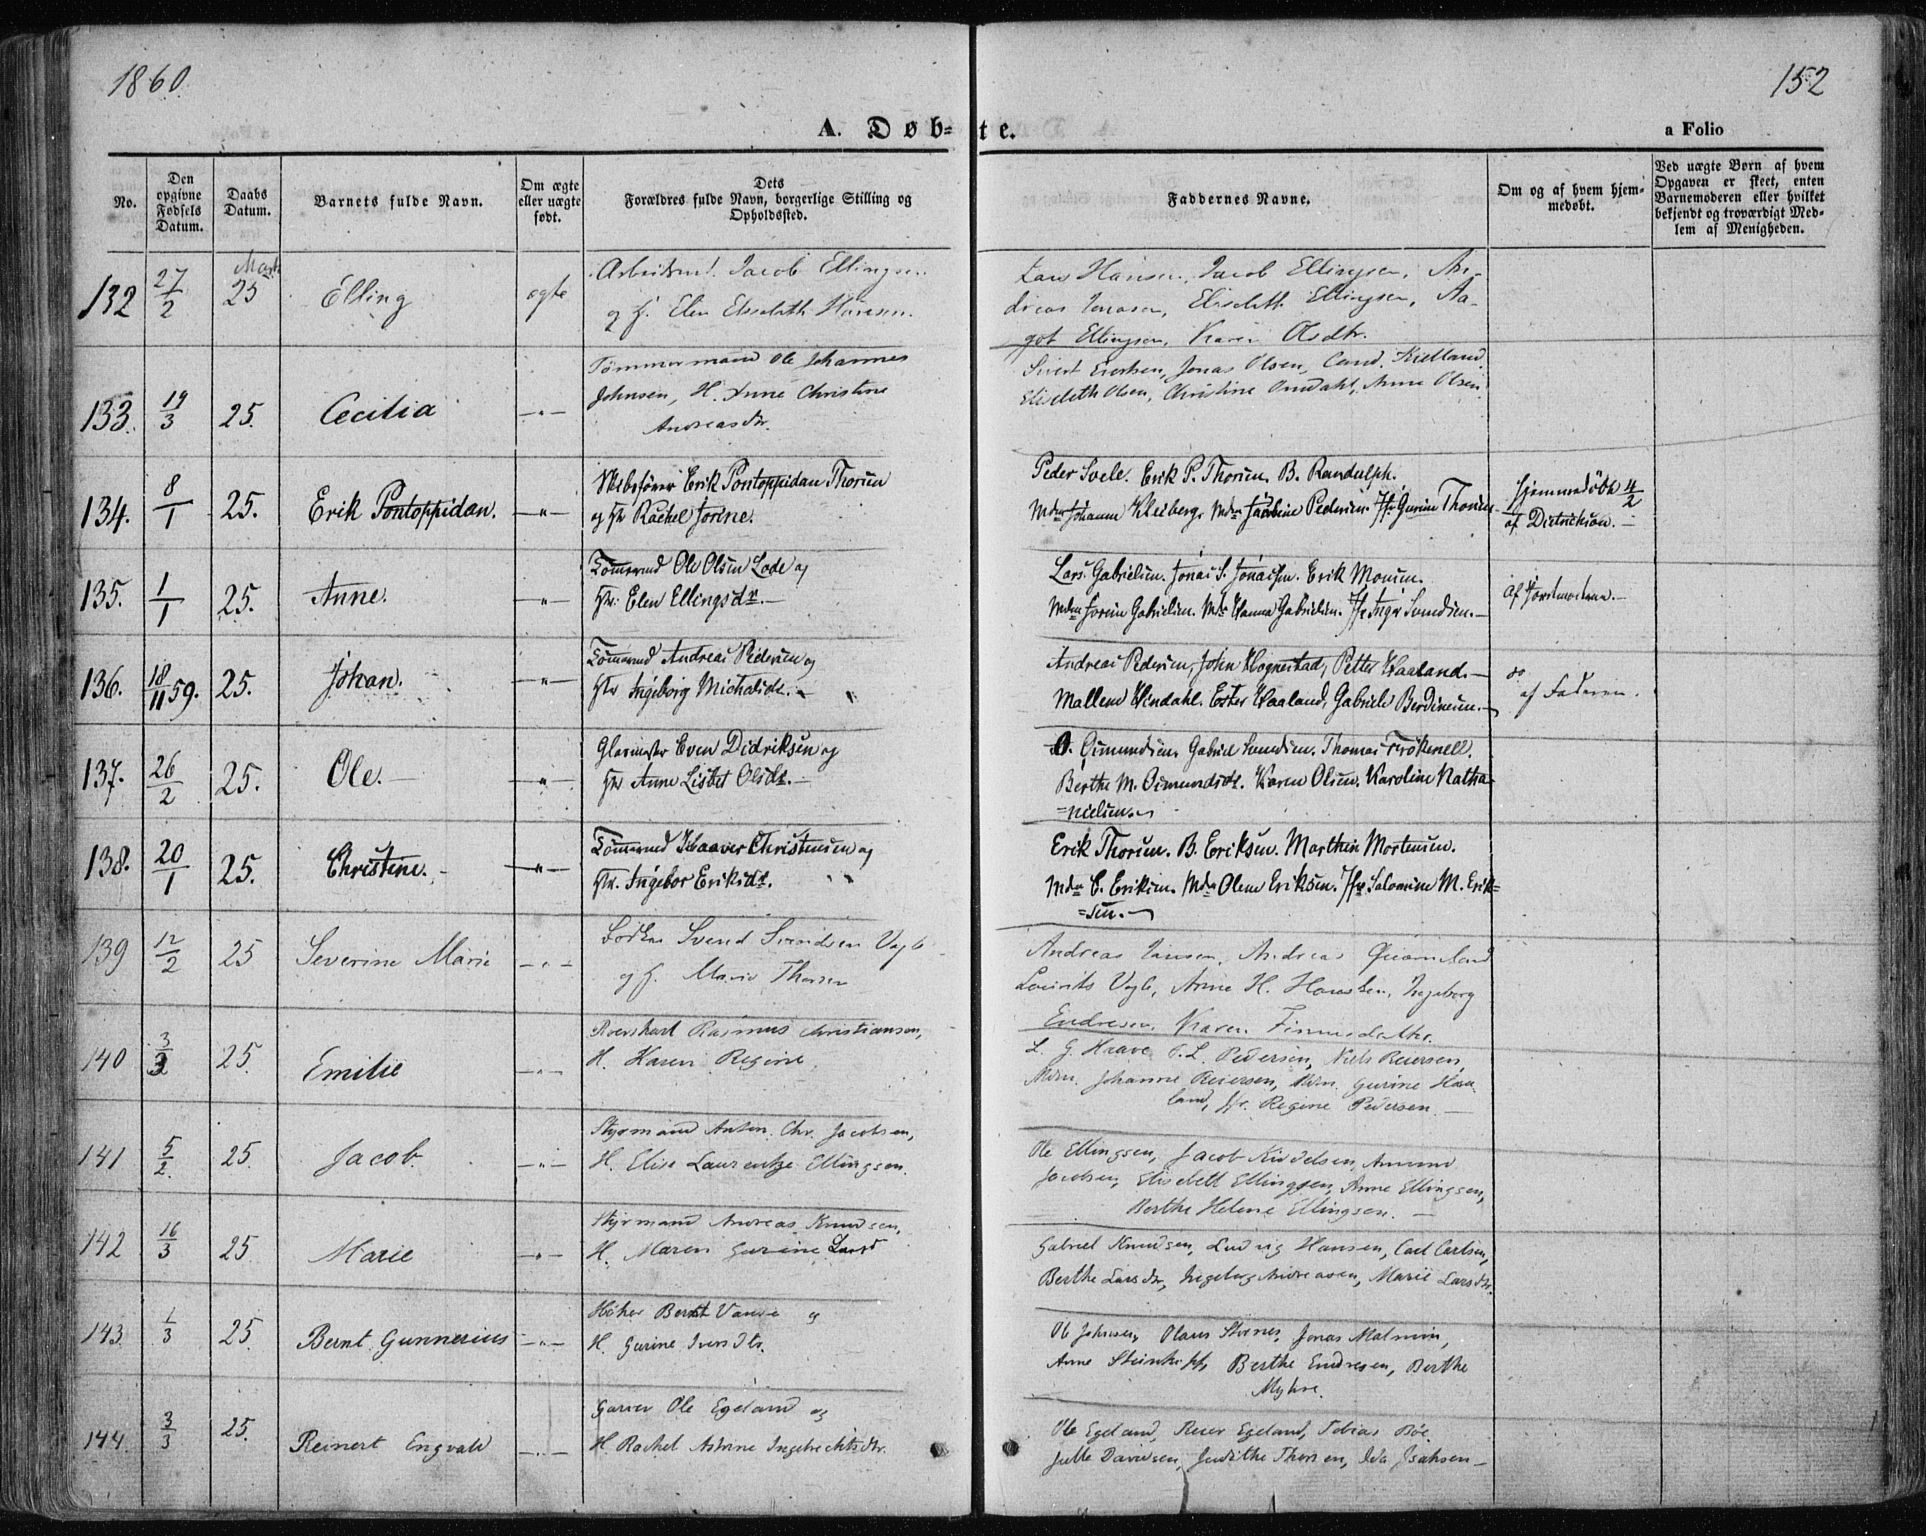 1860
152
A. Døb-te.
a Folio
No.
Den opgivne Fødsels Datum.
Daabs Datum.
Barnets fulde Navn.
Om ægte eller uægte født.
Dets Forældres fulde Navn, borgerlige Stilling og Opholdssted.
Faddernes Navne.
Om og af hvem hjemmedøbt.
Ved uægte Børn af hvem Opgaven er skeet, enten Barnemoderen eller hvilket bekjendt og troværdigt Medlem af Menigheden.
132 27/2 Marts 25 Elling ægte
Arbeidsmd. Jacob Ellingsen
og H. Elen Elisabeth Hansen.
Lars Hansen, Jacob Ellingsen, An-
dreas Jonasen, Elisabeth Ellingsen, Aa-
got Ellingsen, Karen Olsdtr.
133. 19/3 25. Cecilia -"-
Tømmermand Ole Johannes
Johnsen, H. Anne Christine
Andreasdtr.
Sivert Evertsen, Jonas Olsen, Cand. Kielland.
Elisabeth Olsen, Christine Omdahl, Anne Olsen.
134. 8/1 25. Erik Pontoppidan. -"-
Skibsfører Erik Pontoppidan Thorsen
og Hr Rachel Jorine.
Peder Svele. Erik P. Thorsen. B. Randulph.
Mdm Johanne Kleiberg. Mdm Jacobine Pedersen. Jfr Gurine Thorsen
Hjemmedøbt 4/2
af Didrickson.
135. 1/1 25. Anne. -"-
Tømmermd Ole Olsen Lode og
Hr. Elen Ellingsdr.
Lars Gabrielsen. Jonas S. Jonassen. Erik Monsen.
Mdm Serine Gabrielsen. Md. Hanna Gabrielsen. Jfr Inger Svendsen.
af Jordmoderen.
136. 18/11 59. 25. Johan. -"-
Tømmermd Andreas Pedersen og
Hr Ingeborg Michalsdt.
Andreas Pedersen, John Hognestad, Petter Haaland.
Mallene Windahl. Ester Haaland, Gabriele Berdinesen.
do
af Faderen.
137. 26/2 25. Ole. -"-
Glarmester Even Didriksen og
Hr Anne Lisbet Olsdt.
O. Gimundsen. Gabriel Svendsen. Thomas
Berthe M. Osmundsdt. Karen Olsen. Karoline Natha-
=nielsen.
138. 20/1 25. Christine. -"-
Tømmermd Haaver Christensen og
Hr. Ingebor Eriksdt.
Erik Thorsen. B. Eriksen. Marthin Mortensen.
Mdm C. Eriksen. Mdm Olene Eriksen. Jfr Salomine M. Erik=
=sen.
139 12/2 25 Severine Marie -"-
Bødker Svend Svendsen Vagle
og H. Marie Thorsen
Andreas Jansen, Andreas Qvameland
Lourits Vagle, Anne H. Hansken, Ingeborg
Endresen, Karen Finnesdatter.
140 3/3 25. Emilie -"-
Roerskarl Rasmus Christiansen,
H. Karen Regine
L. G. Haave, T. L. Pedersen, Niels Reiersen,
Mdm. Johanne Reiersen, Mdm. Gurine Haa-
land, Jfr. Regine Pedersen.
141 5/2 25. Jacob. -"-
Styrmand Anton Chr. Jacobsen,
H. Elise Laurentze Ellingsen.
Ole Ellingsen, Jacob Kindelsen, Amund
Jacobsen, Elisabeth Ellingsen, Anne Ellingsen,
Berthe Helene Ellingsen.
142 16/3 25 Marie -"-
Styrmand Andreas Knudsen,
H. Maren Gurine Larsd
Gabriel Knudsen, Ludvig Hansen, Carl Carlsen,
Berthe Larsdtr, Ingeborg Andreasen, Marie Larsdtr.
143. 1/3 25 Bernt Gunnerius -"-
Høker Bernt Vaule og
H. Gurine Iversdtr.
Ole Johnsen, Olaus Stornes, Jonas Malmin,
Anne Steinkopf, Berthe Endresen, Berthe
Myhre.
144. 3/3 25. Reinert Engvald -"-
Garver Ole Egeland og
H. Rachel Astrine Ingebrechtsdtr.
Ole Egeland, Reier Egeland, Tobias Bøe,
Julle Davidsen, Judithe Thorsen, Ida Isaksen